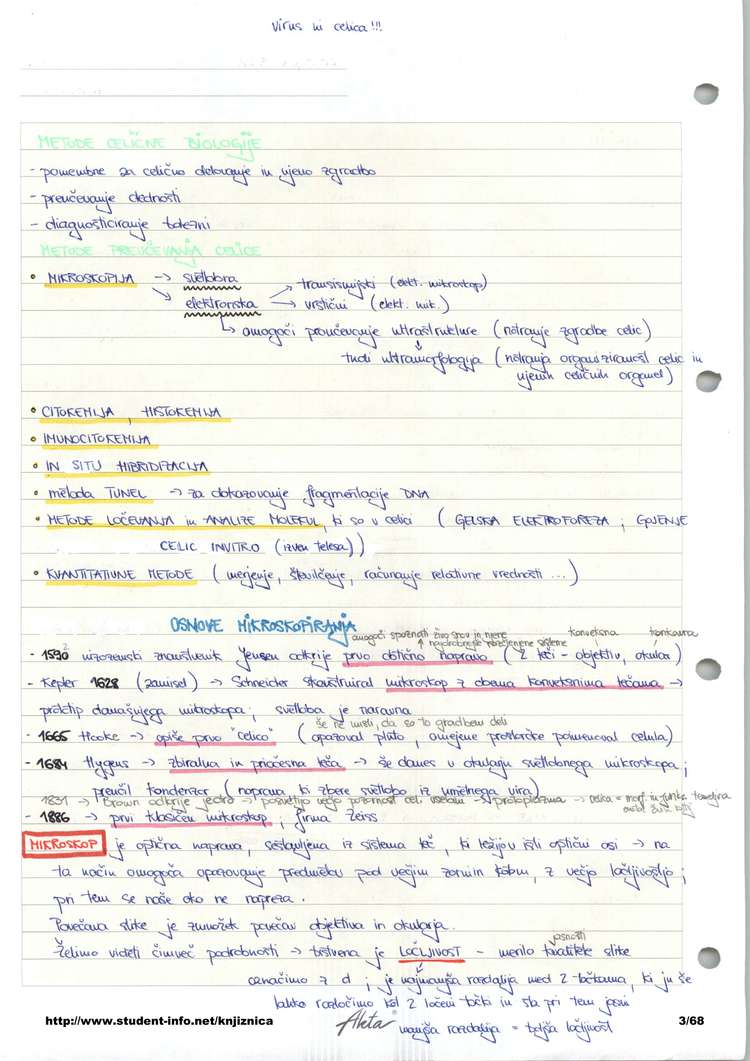 virus ni celica!!!
METODE CELIČNE BIOLOGIJE
- pomembne za celično delovanje in njeno zgradbo
- preučevanje dednosti
- diagnosticiranje bolezni
METODE PREUČEVANJA CELICE
• MIKROSKOPIJA → svetlobna
→ transmisijski (elekt. mikroskop)
↘ elektronska → vrstični (elekt. mik.)
↳ omogoči proučevanje ultrastrukture (notranje zgradbe celic)
↓
tudi ultramorfologija (notranja organiziranost celic in
njenih celičnih organel)
• CITOKEMIJA, HISTOKEMIJA
• IMUNOCITOKEMIJA
• IN SITU HIBRIDIZACIJA
• metoda TUNEL → za dokazovanje fragmentacije DNA
• METODE LOČEVANJA in ANALIZE MOLEKUL, ki so v celici (GELSKA ELEKTROFOREZA; GOJENJE
CELIC INVITRO (izven telesa))
• KVANTITATIVNE METODE (merjenje, številčenje, računanje relativne vrednosti ...)
OSNOVE MIKROSKOPIRANJA
omogoči spoznati živo snov in njene konveksna konkavna
- 1590 nizozemski znanstvenik Jensen odkrije prvo optično napravo (2 leči - objektiv, okular)
- Kepler 1628 (zamisel) → Schneider skonstruiral mikroskop z obema konveksnima lečama →
prototip današnjega mikroskopa; svetloba je naravna
še ne misli, da so to gradbeni deli
- 1665 Hooke → opiše prvo "celico" (opazoval pluto, omejene prostorčke poimenoval celula)
- 1684 Hygens → zbiralna in priočesna leča → še danes v okularju svetlobnega mikroskopa;
preučil kondenzor (naprava, ki zbere svetlobo iz umetnega vira)
1831 → Brown odkrije jedro → posvetijo večjo pozornost cel. vsebini → protoplazma → celica = morf. in funkc. temeljna
- 1886 → prvi klasičen mikroskop, firma Zeiss
MIKROSKOP je optična naprava, sestavljena iz sistema leč, ki ležijo v isti optični osi → na
ta način omogoča opazovanje predmetov pod večjim zornim kotom, z večjo ločljivostjo;
pri tem se naše oko ne napreza.
Povečava slike je zmnožek povečav objektiva in okularja.
jasnosti
Želimo videti čimveč podrobnosti → bistvena je LOČLJIVOST - merilo kvalitete slike
označimo z d; je najmanjša razdalja med 2 točkama, ki ju še
lahko razločimo kot 2 ločeni točki in sta pri tem jasni
manjša razdalja = boljša ločljivost
http://www.student-info.net/knjiznica
Akta
3/68